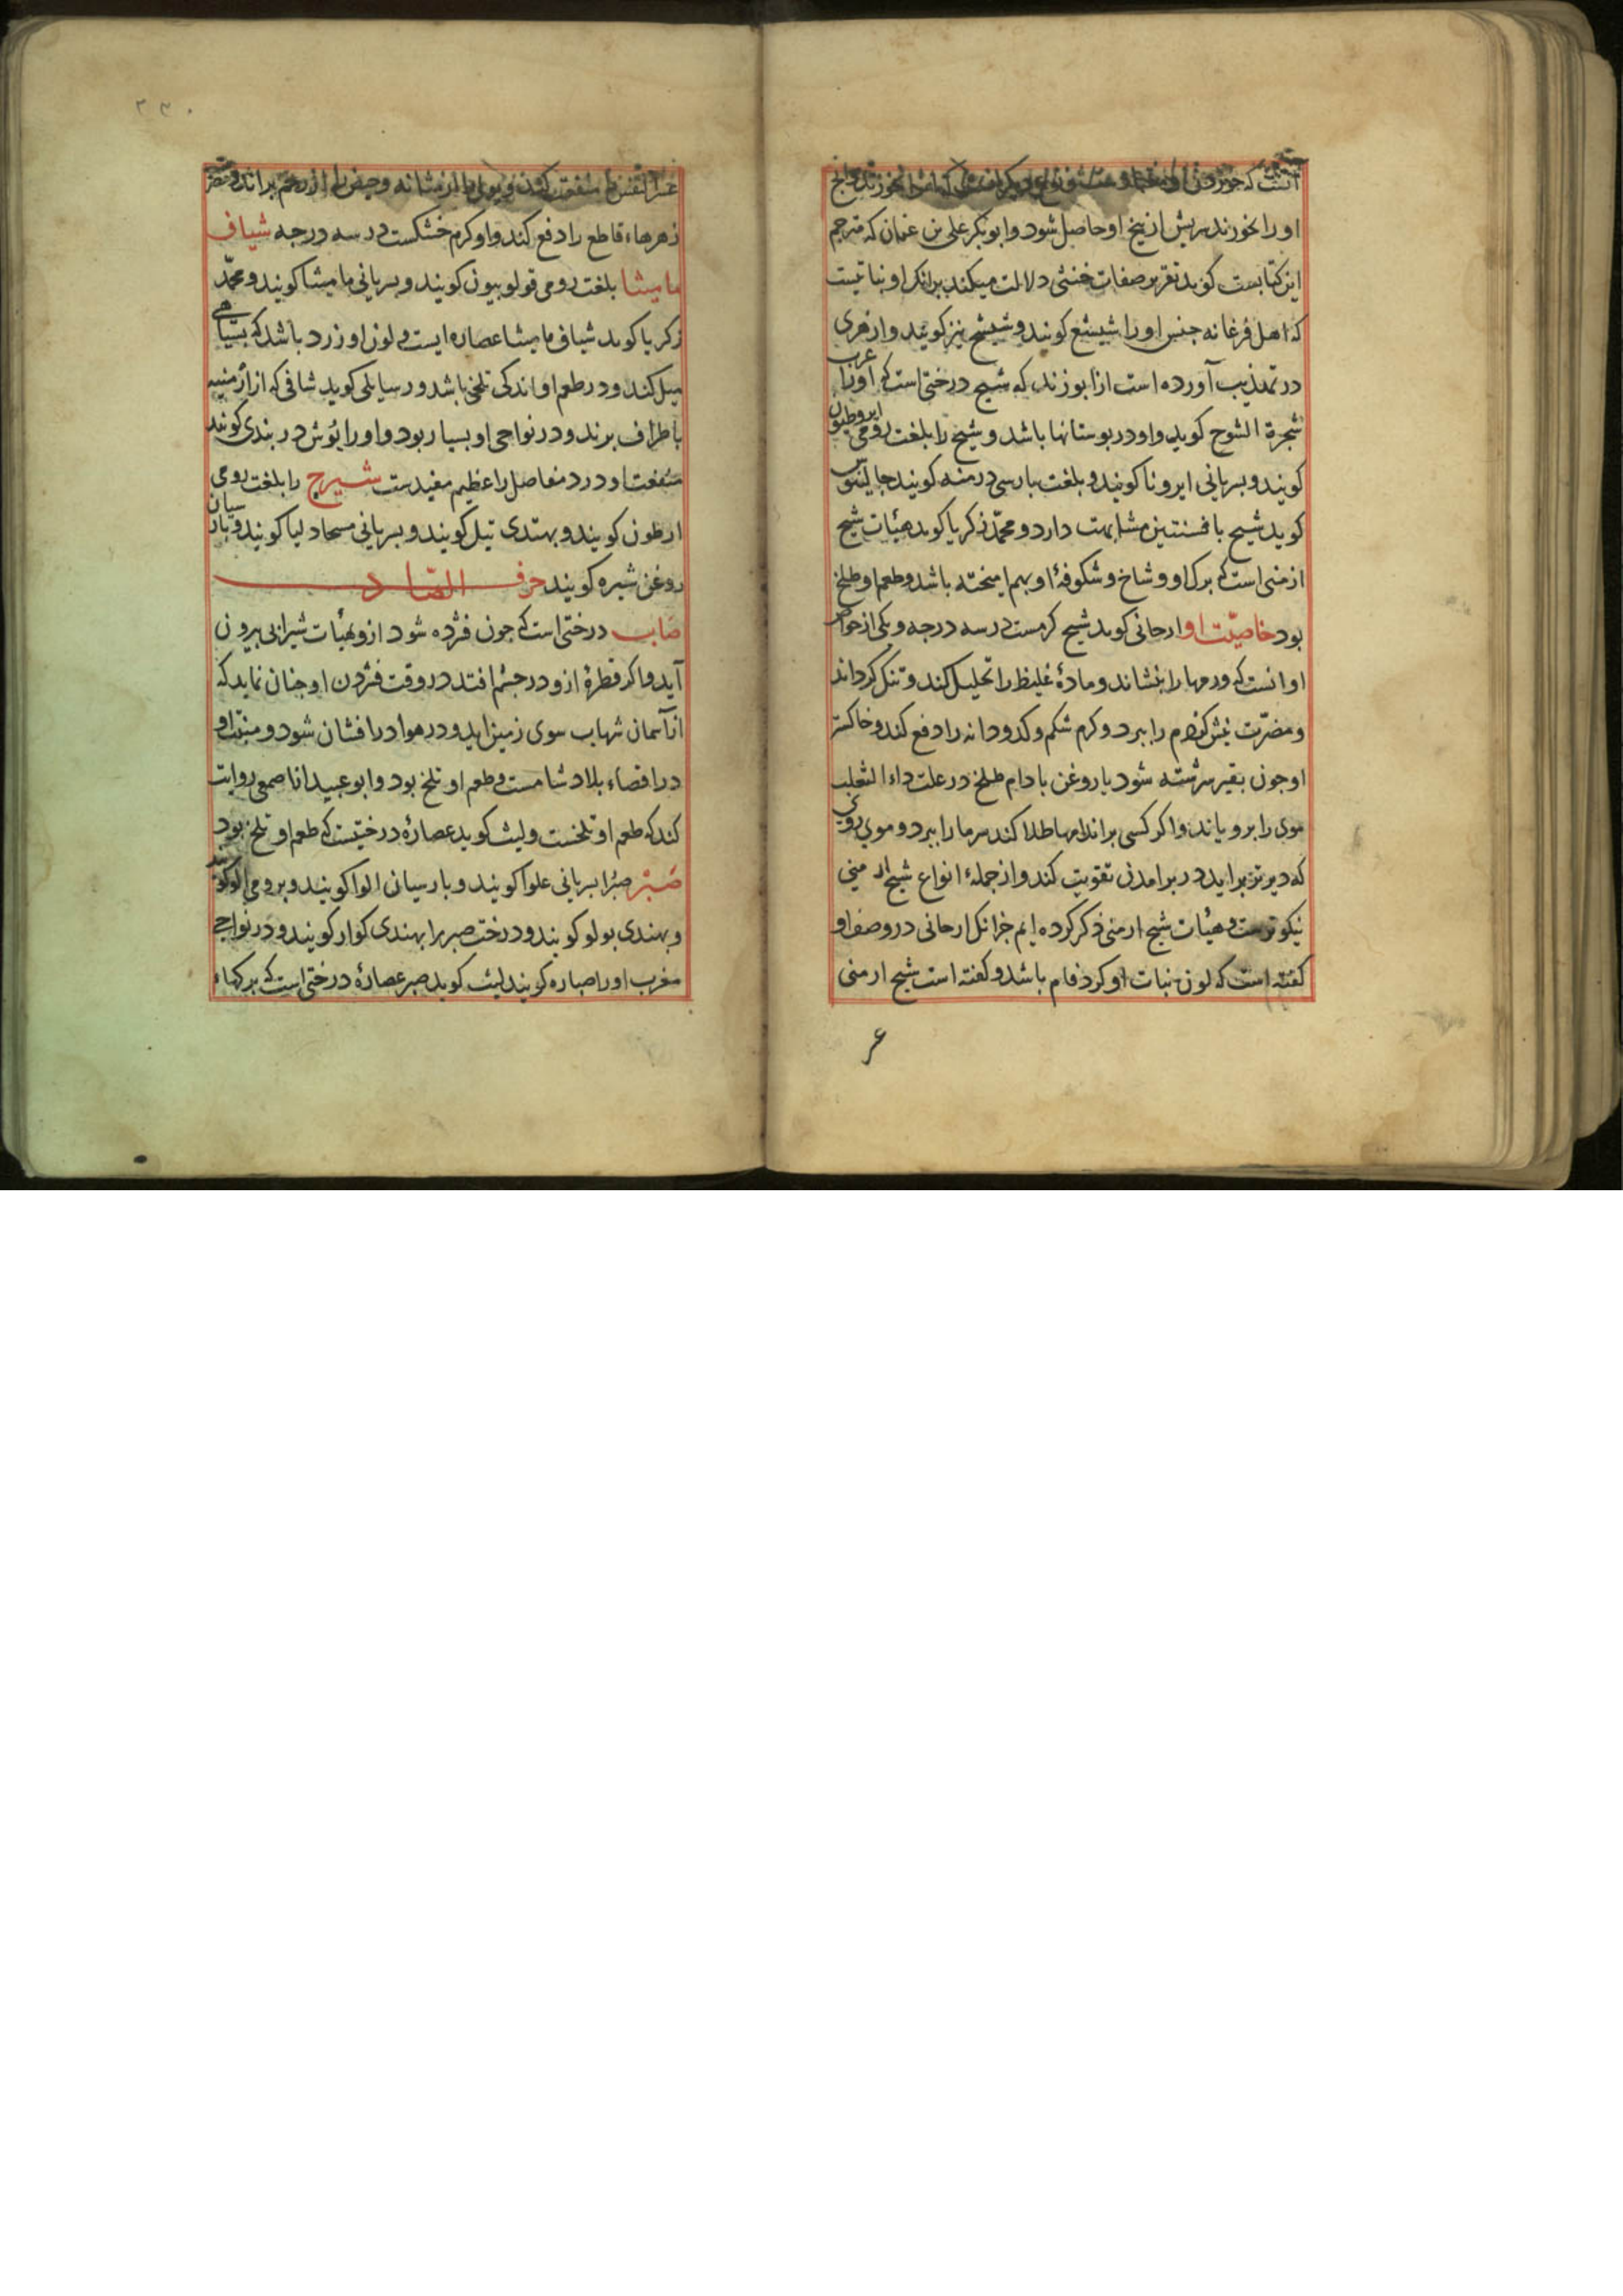 او را بخورند سریش از بیخ او حاصل شود و ابوبکر علی بن عثمان که مترجم
این کتابست کوید تقریر صفات خنثی دلالت میکند برانک او نباتیست
که اهل فرغانه جنس او را شیشغ کویند و شیشح نیز کویند و ازهری
در تهذیب آورده است از ابو زند که شیح درختی است که او را عرب
شجرة الشوح کوید و او در بوستانها باشد و شیح را بلغت رومی ابروطیون
کویند و بسریانی ایرونا کویند و بلغت بارسی درمنه کویند جالینوس
کوید شیح با فسنتین مشابهت دارد و محمد زکریا کوید هیئات شیح
ارمنی است که برک او و شاخ و شکوفهٔ او بهم امیخته باشد و طعم او طلخ
بود خاصیّت او ارجانی کوید شیح کرمست در سه درجه و یکی از خواص
او انست که ورمها را بنشاند و مادهٔ غلیظ را تحلیل کند و تنک کرداند
و مضرّت نیش کژدم را ببرد و کرم شکم و کدودانه را دفع کند و خاکستر
او جون بقیر سرشته شود یا روغن بادام طلخ در علت داء الثعلب
موی را برویاند و اکر کسی بر اندامها طلا کند سرما را ببرد و موی روی
که دیرتر براید در برامدن تقویت کند و از جملهٔ انواع شیح ارمنی
نیکوترست و هیئات شیح ارمنی ذکر کرده ایم جز انک ارجانی در وصف او
کفته است که لون نبات او کرد فام باشد و کفته است شیح ارمنی
۲۳۰
عسر النفس را منفعت کند و بول را از مثانه و حیض را از رحم براند و مضرت
زهرهاء قاطع را دفع کند و او کرم خشکست در سه درجه شیاف
مامیثا بلغت رومی قولوبیون کویند و بسریانی مامیثا کویند و محمّد
زکریا کوید شیاف مامیثا عصاره ایست و لون او زرد باشد که بسیاهی
میل کند و در طعم او اندکی تلخی باشد و رسایلی کوید شافی که از ارمنیه
باطراف برند و در نواحی او بسیار بود و او را بوش دربندی کویند
منفعت او درد مفاصل را عظیم مفیدست شیرج را بلغت رومی
ارطون کویند و بهندی تیل کویند و بسریانی مسحاد لیا کویند و بارسیان
روغن شیره کویند حرف الصّاد
صاب درختی است که جون فژده شود ازو بهیأت شیر ابی بیرون
آید و اکر قطرهٔ ازو در جشم افتد در وقت فژدن او جنان نماید که
از آسمان شهاب سوی زمین اید و در هوا درافشان شود و منبت او
در اقصاء بلاد شامست و طعم او تلخ بود و ابو عبید از اصمعی روایت
کند که طعم او تلخست و لیث کوید عصارهٔ درختیست که طعم او تلخ بود
صَبْر صبر را بسریانی علوا کویند و بارسیان الوا کویند و برومی الوا کویند
و بهندی بولو کویند و درخت صبر را بهندی کوار کویند و در نواحی
مغرب او را صباره کویند لیث کوید صبر عصارهٔ درختی است که برکهاء